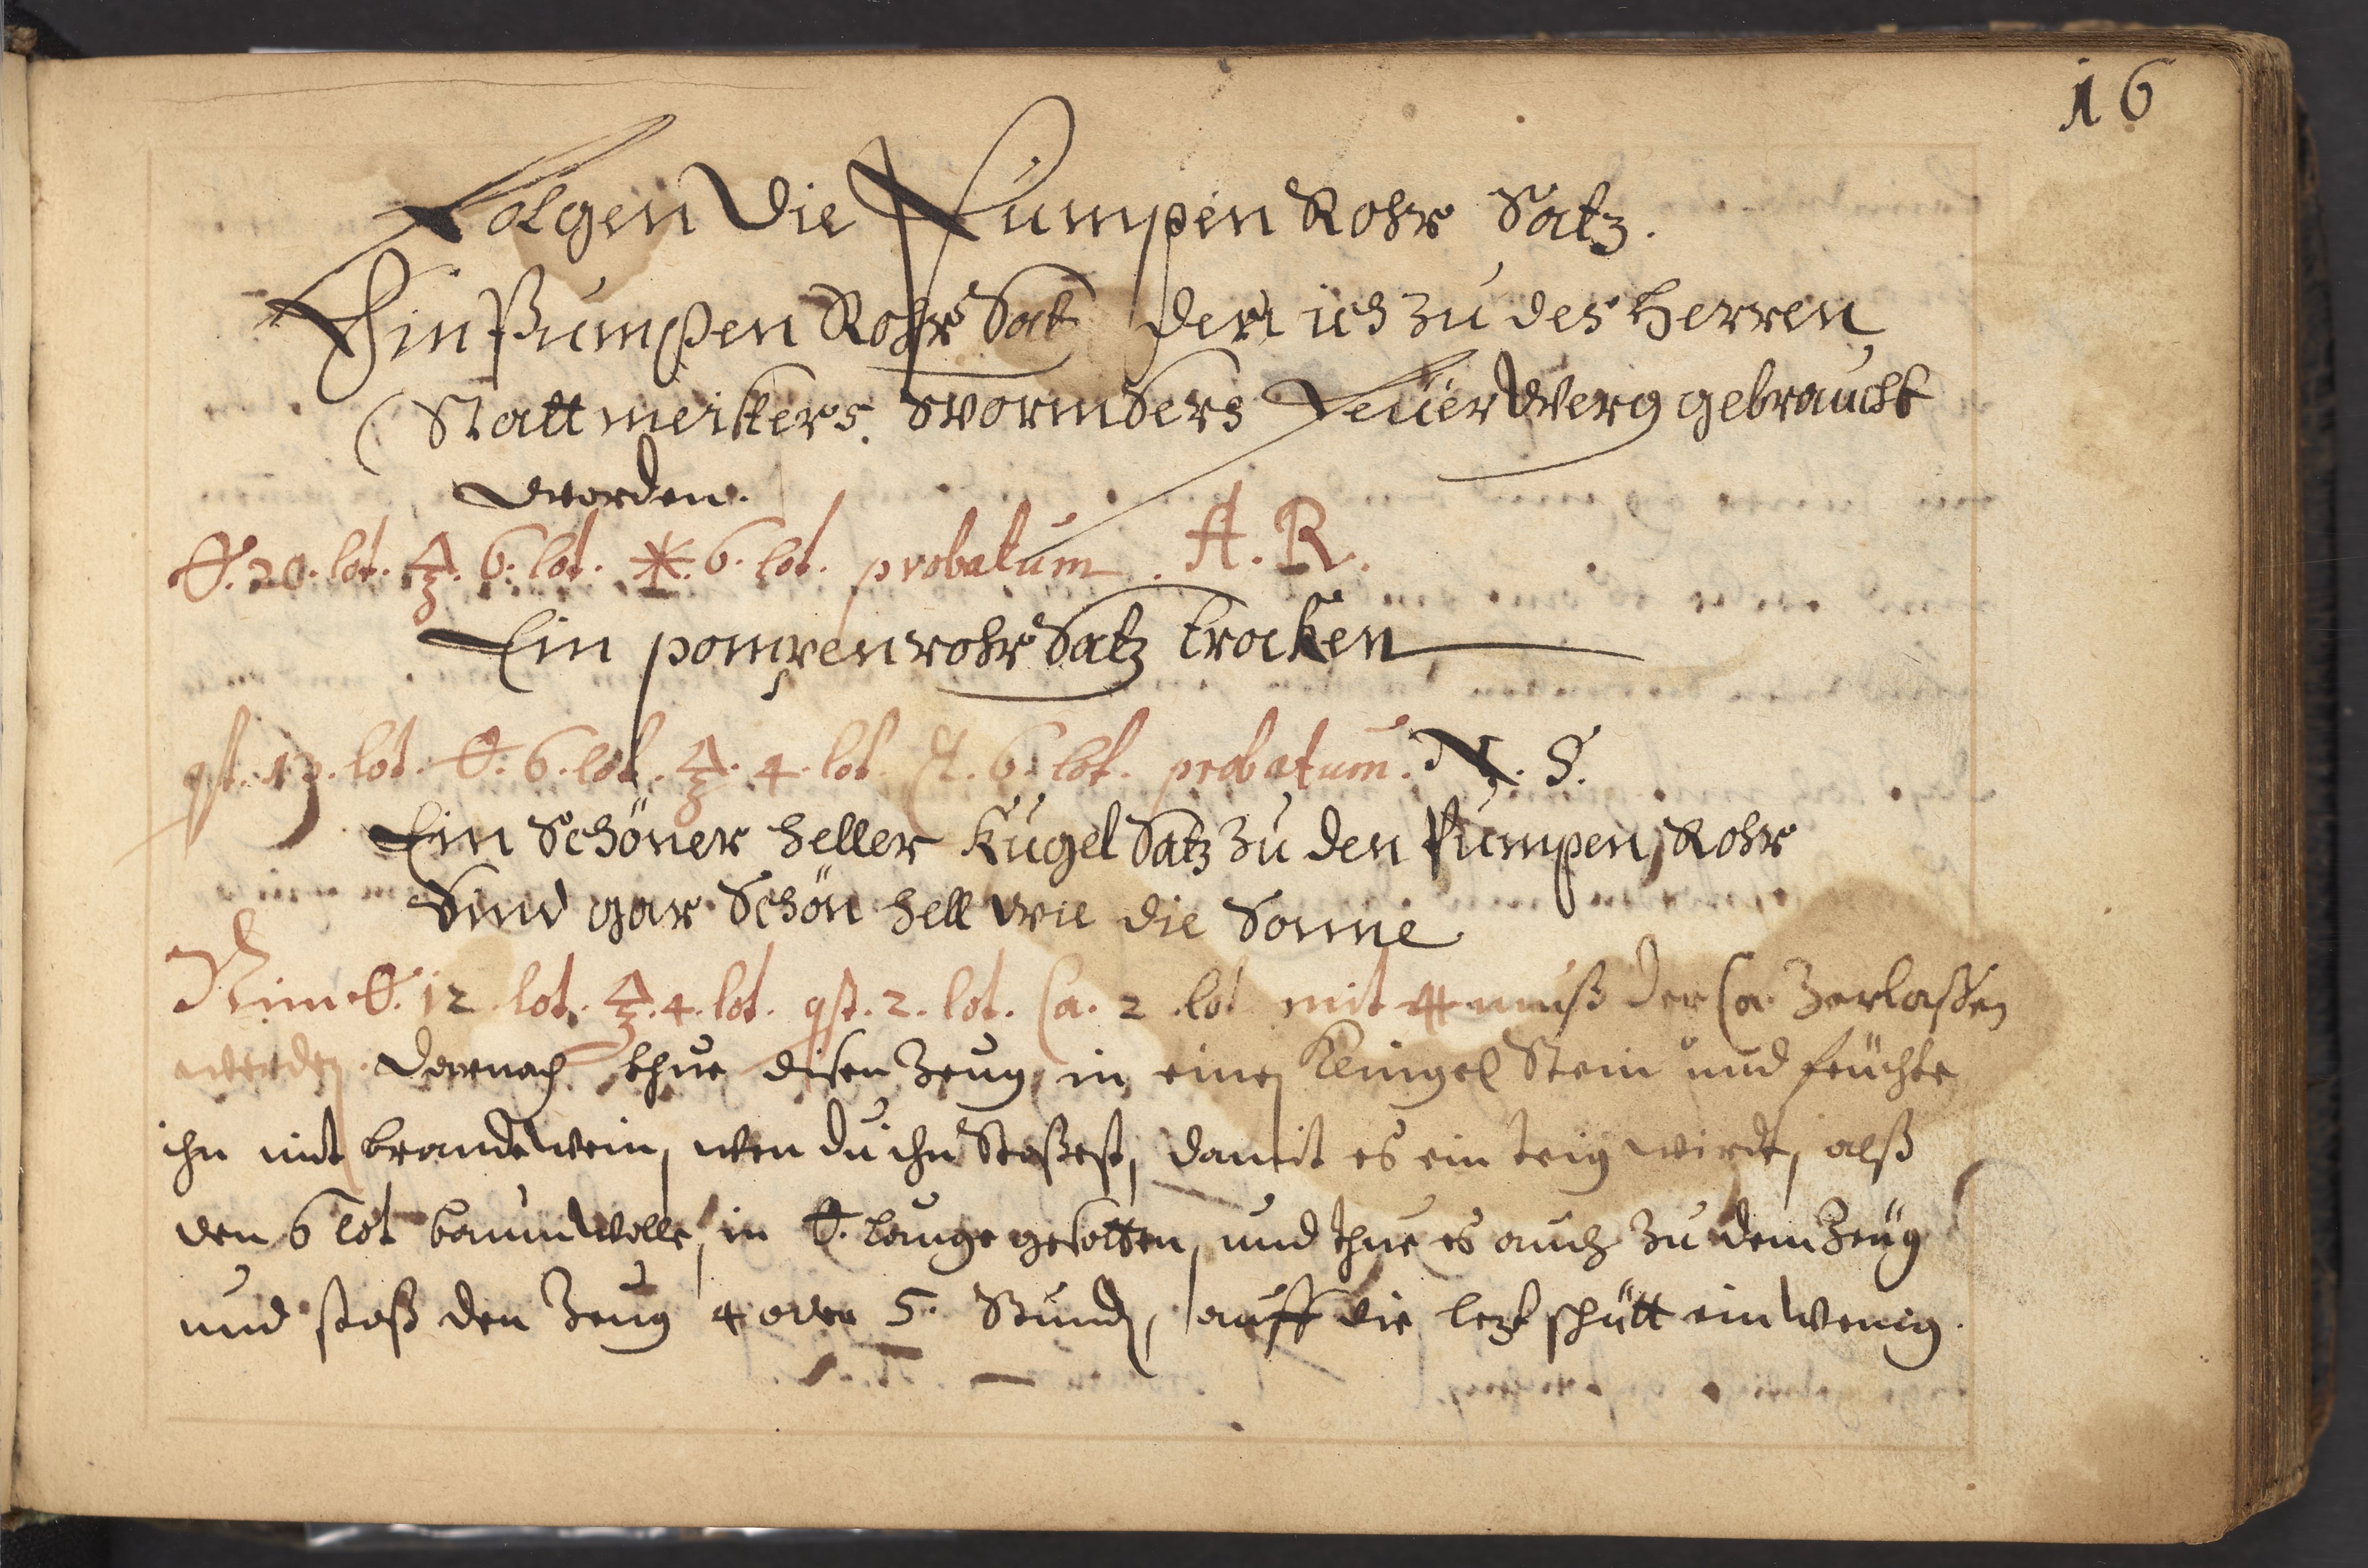 16
Folgen Die Pumpen Rohr Satz.
Ein Pumpen Rohr Satz Der ich zu des Herren
Stattmeisters Wormsers Feüer Werg gebraucht
worden.
20. lot. 6. lot. 6. lot. probatum. A. R.
Ein pompen rohr Satz trocken
lot. 6. lot. 4. lot. 6. lot. probatum. N. S.
Ein Schöner heller Kugel Satz zu den Pumpen Rohr
Sind gar Schön hell wie die Sonne
Nim 12 lot. 4. lot. 2. lot. Ca. 2 lot mit muß der Ca. Zerlassen
werden. darnach thue disen Zeug in einen Stein und feuchte
ihn mit brandwein, wen du ihn Stossest, damit es ein teig wirdt, alß
den 6 lot baumwolle, in lauge gesotten, und thue es auch zu dem Zeüg
und stoß den Zeug 4 oder 5. Stund, auff die lezt schütt ein wenig.